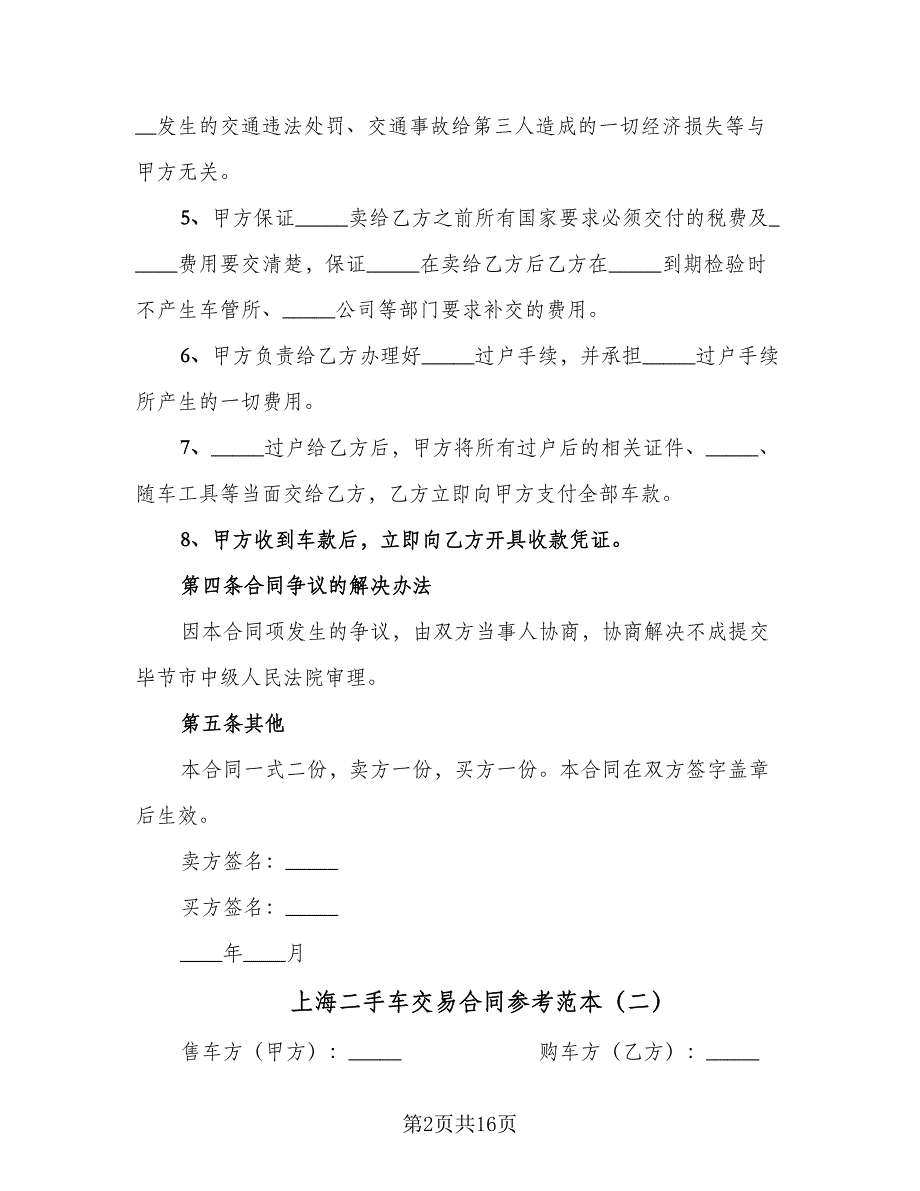 __发生的交通违法处罚、交通事故给第三人造成的一切经济损失等与
甲方无关。
5、甲方保证_____卖给乙方之前所有国家要求必须交付的税费及_
____费用要交清楚，保证_____在卖给乙方后乙方在_____到期检验时
不产生车管所、_____公司等部门要求补交的费用。
6、甲方负责给乙方办理好_____过户手续，并承担_____过户手续
所产生的一切费用。
7、_____过户给乙方后，甲方将所有过户后的相关证件、_____、
随车工具等当面交给乙方，乙方立即向甲方支付全部车款。
8、甲方收到车款后，立即向乙方开具收款凭证。
第四条合同争议的解决办法
因本合同项发生的争议，由双方当事人协商，协商解决不成提交
毕节市中级人民法院审理。
第五条其他
本合同一式二份，卖方一份，买方一份。本合同在双方签字盖章
后生效。
卖方签名：_____
买方签名：_____
____年____月
上海二手车交易合同参考范本（二）
售车方（甲方）：_____ 购车方（乙方）：_____
第2页共16页